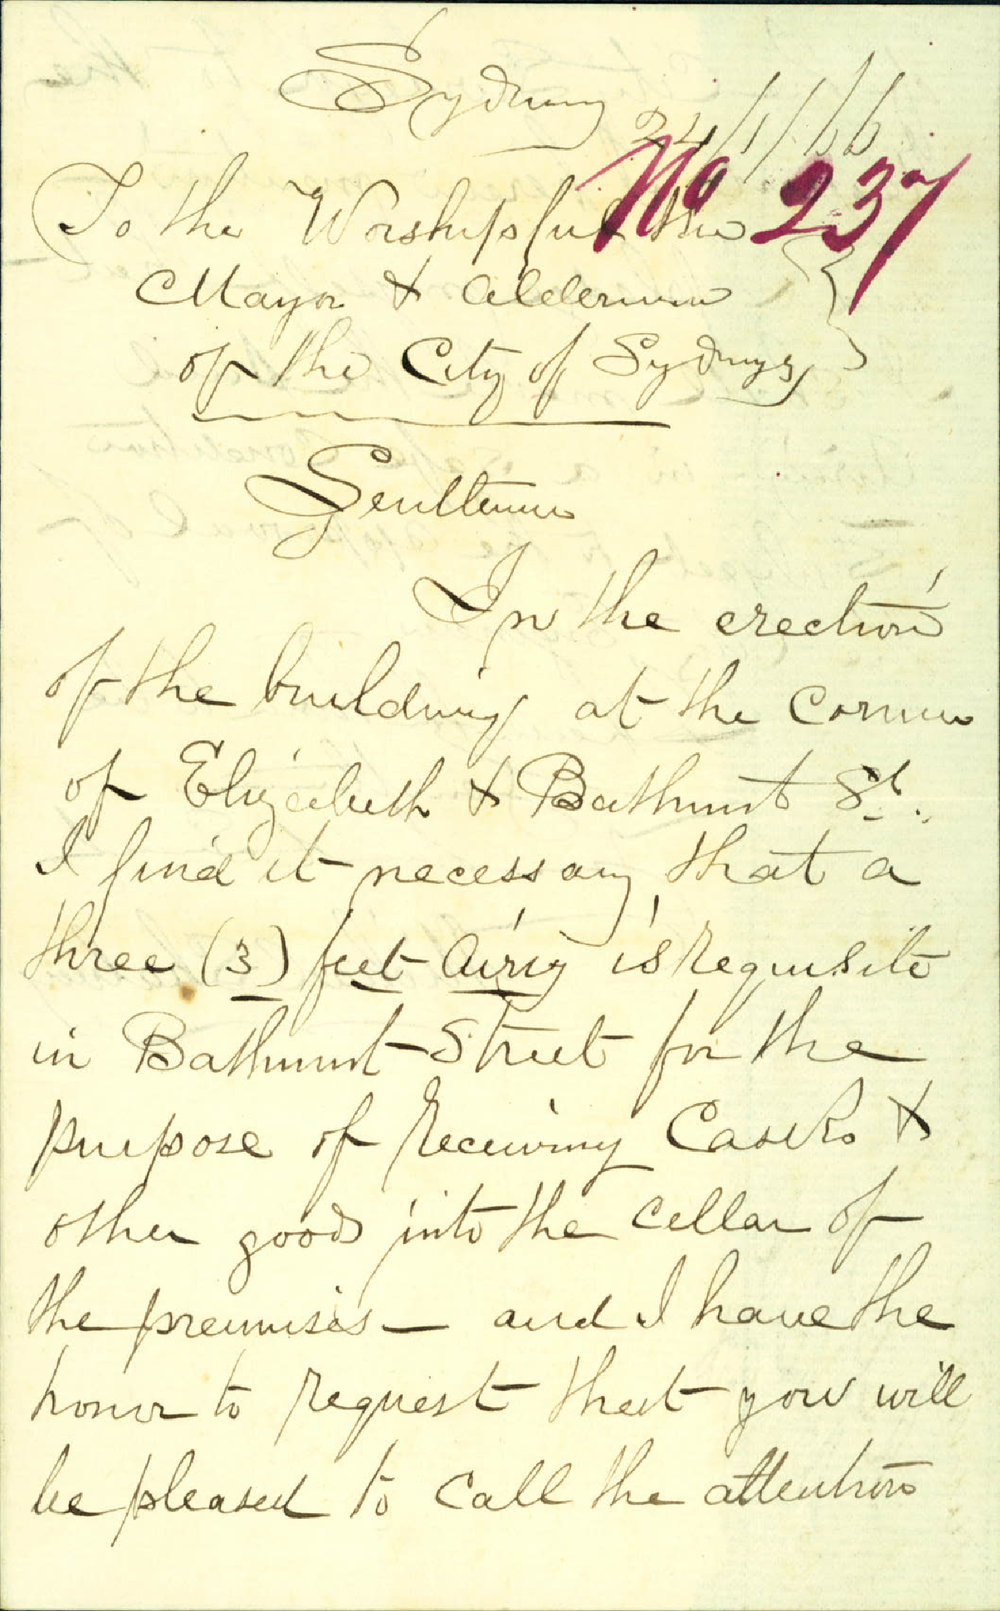 Sydney
24/1/66
No 237
To the Worshipful the
Mayor & Aldermen
of the City of Sydney
Gentlemen
In the erection
of the building at the corner
of Elizabeth & Bathurst St.
I find it necessary that a
three (3) feet Airey is requisite
in Bathurst Street for the
purpose of receiving Casks &
other goods into the cellar of
the premises — and I have the
honor to request that you will
be pleased to call the attention